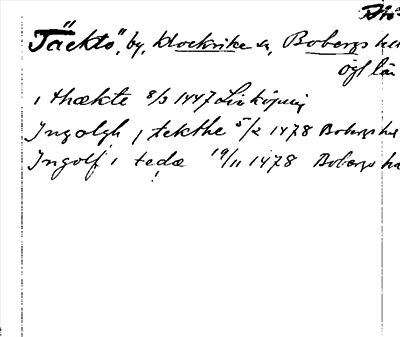 "Täckto", by, Klockrike sn, Bobergs hd
Ögl län
i thækte 8/3 1447 Linköping
Ingolgh i tekthe 5/2 1478 Bobergs hd
Ingolf i tedæ 19/11 1478 Bobergs hd